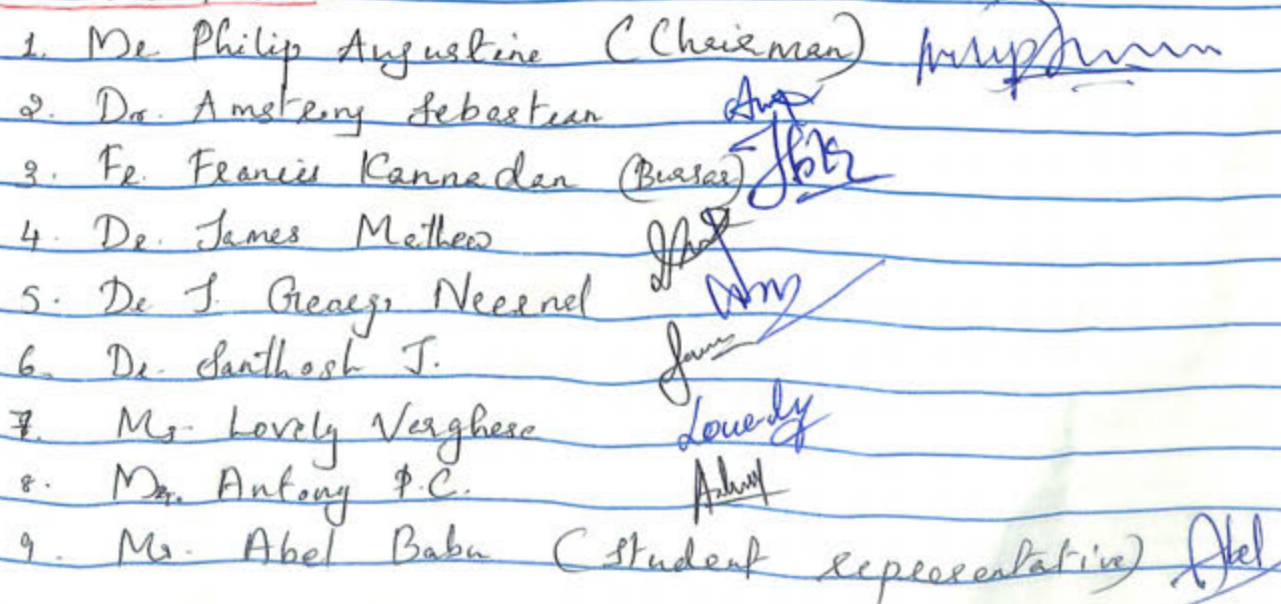 1. Mr. Philip Augustine (Chairman)
2. Dr. Amstrong Sebastian
3. Fr. Francis Kannadan (Bursar)
4. Dr. James Mathew
5. Dr J. George
6. Dr. Santhosh J.
7. Ms. Lovely Varghese Lovely
8. Mr. Antony P.C.
9. Mr. Abel Babu (Student representative) Abel